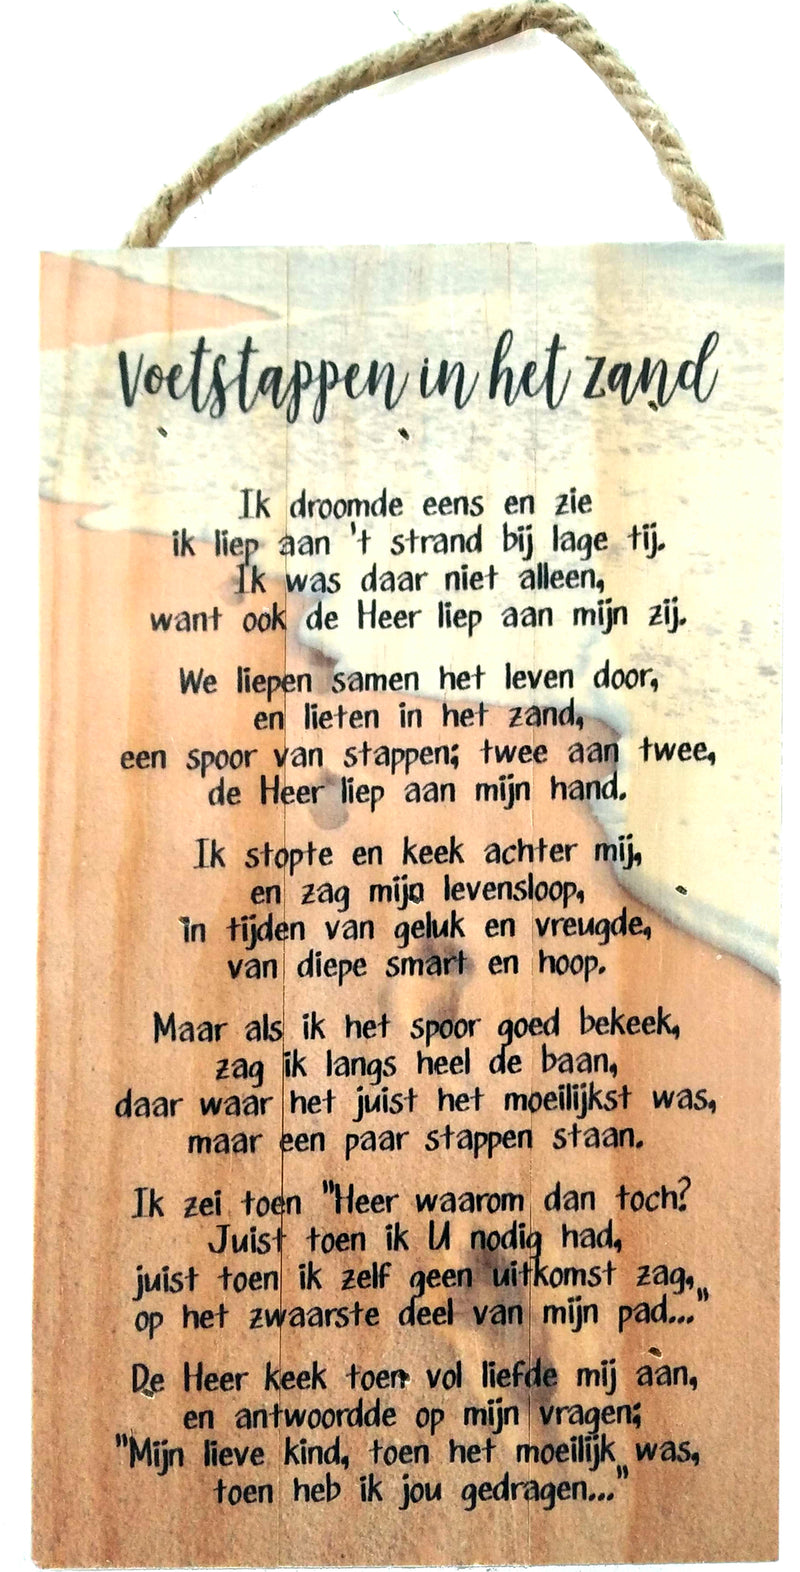 Voetstappen in het zand
Ik droomde eens en zie
ik liep aan 't strand bij lage tij.
Ik was daar niet alleen,
want ook de Heer liep aan mijn zij.
We liepen samen het leven door,
en lieten in het zand,
een spoor van stappen; twee aan twee,
de Heer liep aan mijn hand.
Ik stopte en keek achter mij,
en zag mijn levensloop,
in tijden van geluk en vreugde,
van diepe smart en hoop.
Maar als ik het spoor goed bekeek,
zag ik langs heel de baan,
daar waar het juist het moeilijkst was,
maar een paar stappen staan.
Ik zei toen "Heer waarom dan toch?
Juist toen ik U nodig had,
juist toen ik zelf geen uitkomst zag,
op het zwaarste deel van mijn pad..."
De Heer keek toen vol liefde mij aan,
en antwoordde op mijn vragen;
"Mijn lieve kind, toen het moeilijk was,
toen heb ik jou gedragen..."